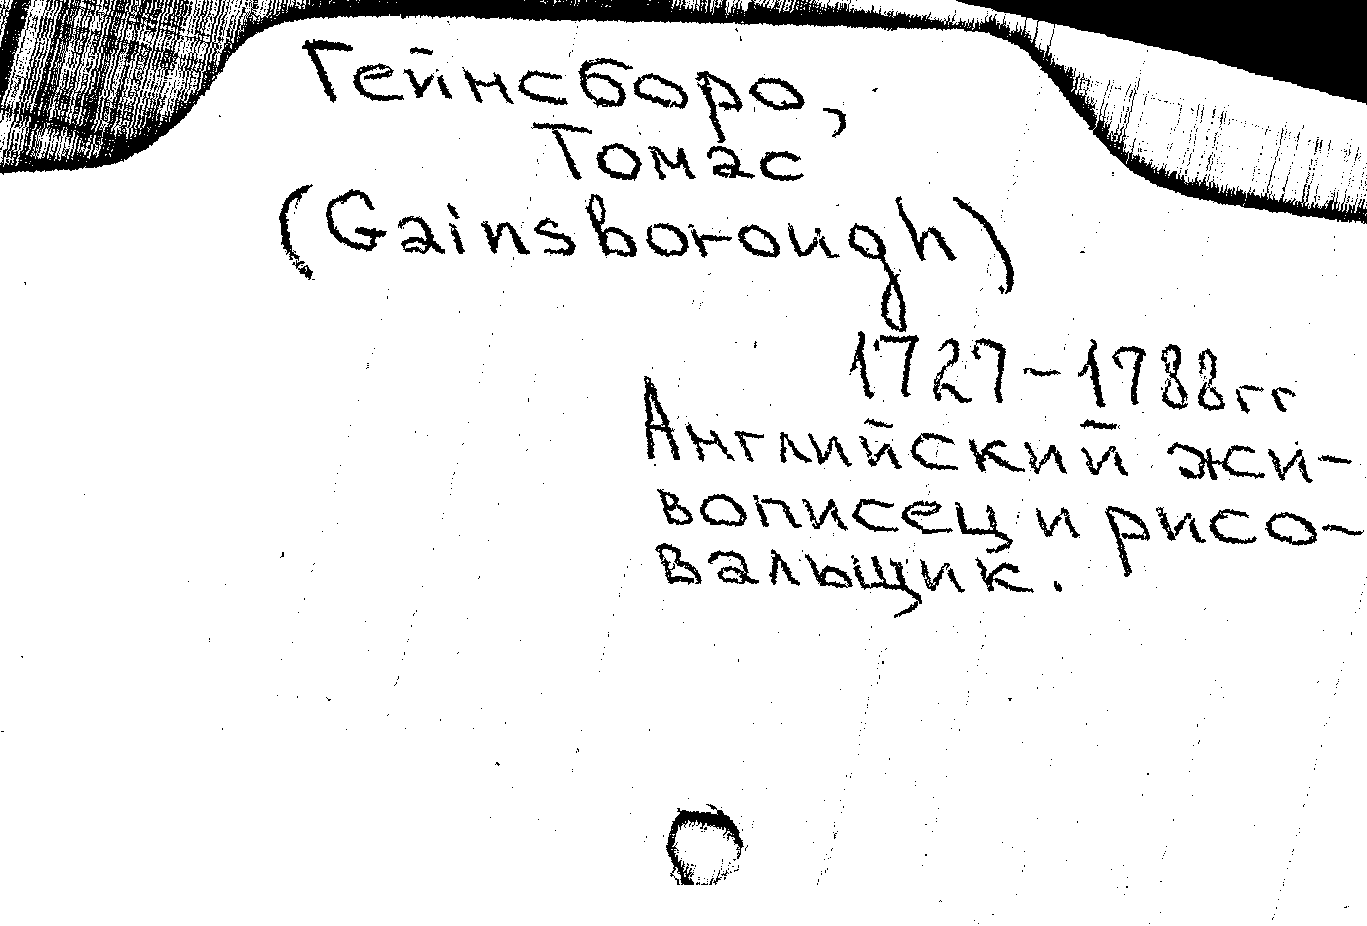 Гейнсборо,
Томас
(Gainsborough)
1727-1788гг
Английский жи-
вописец и рисо-
вальщик.